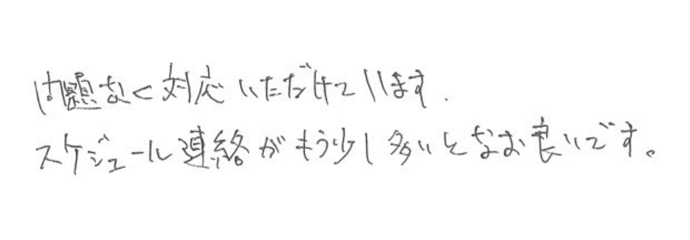 問題なく対応いただけています.
スケジュール連絡がもう少し多いとなお良いです。